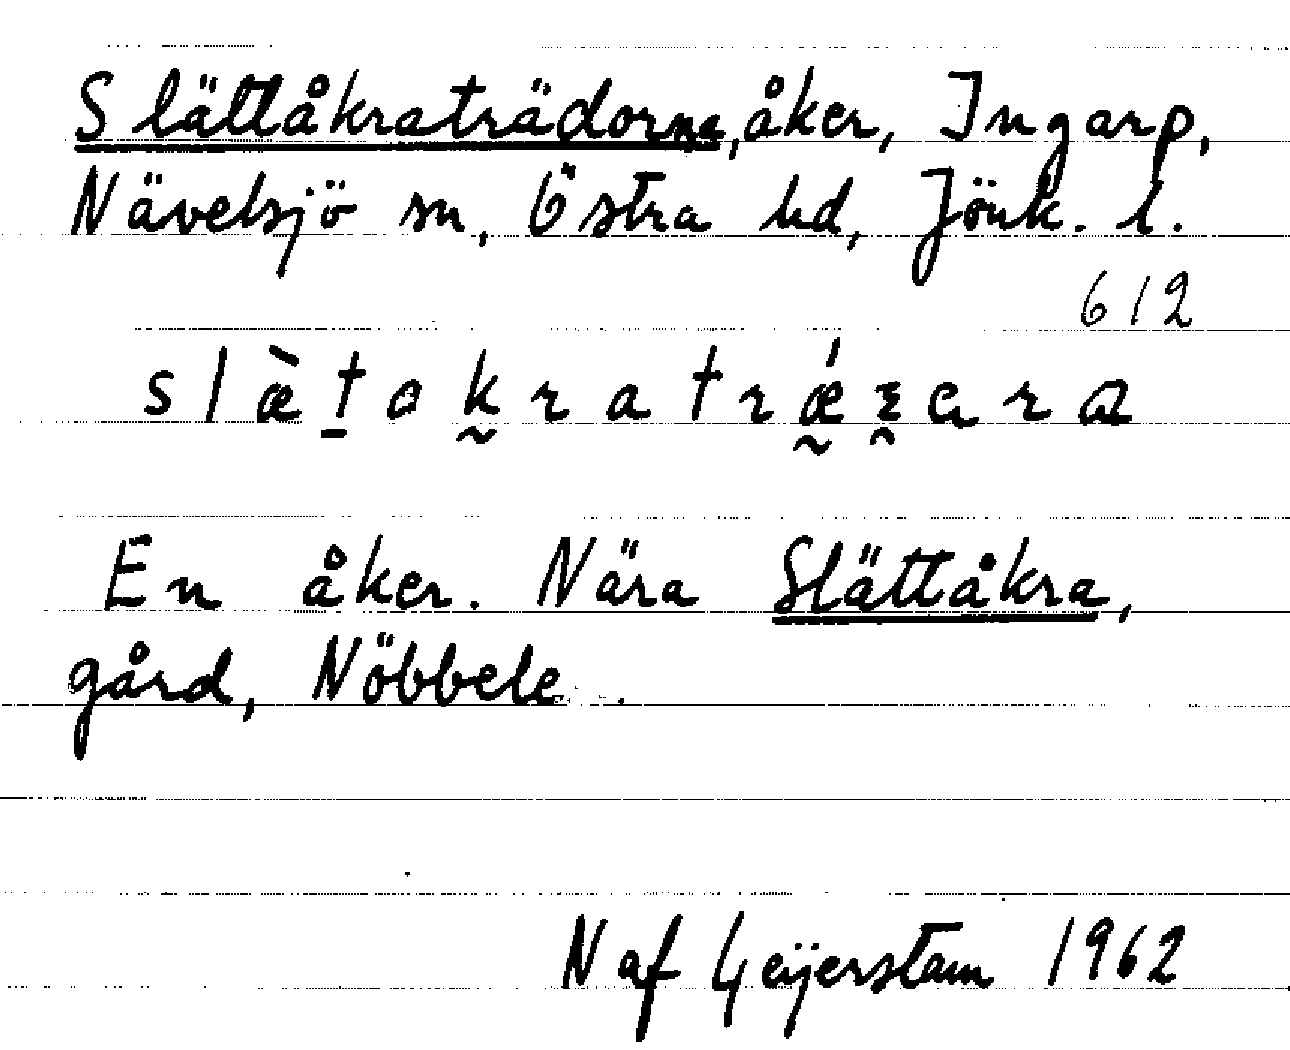 Slättåkraträdorna, åker, Ingarp,
Nävelsjö sn, Östra hd, Jönk. l.
612
En åker. Nära Slättåkra,
gård, Nöbbele.
N af Geijerstam 1962